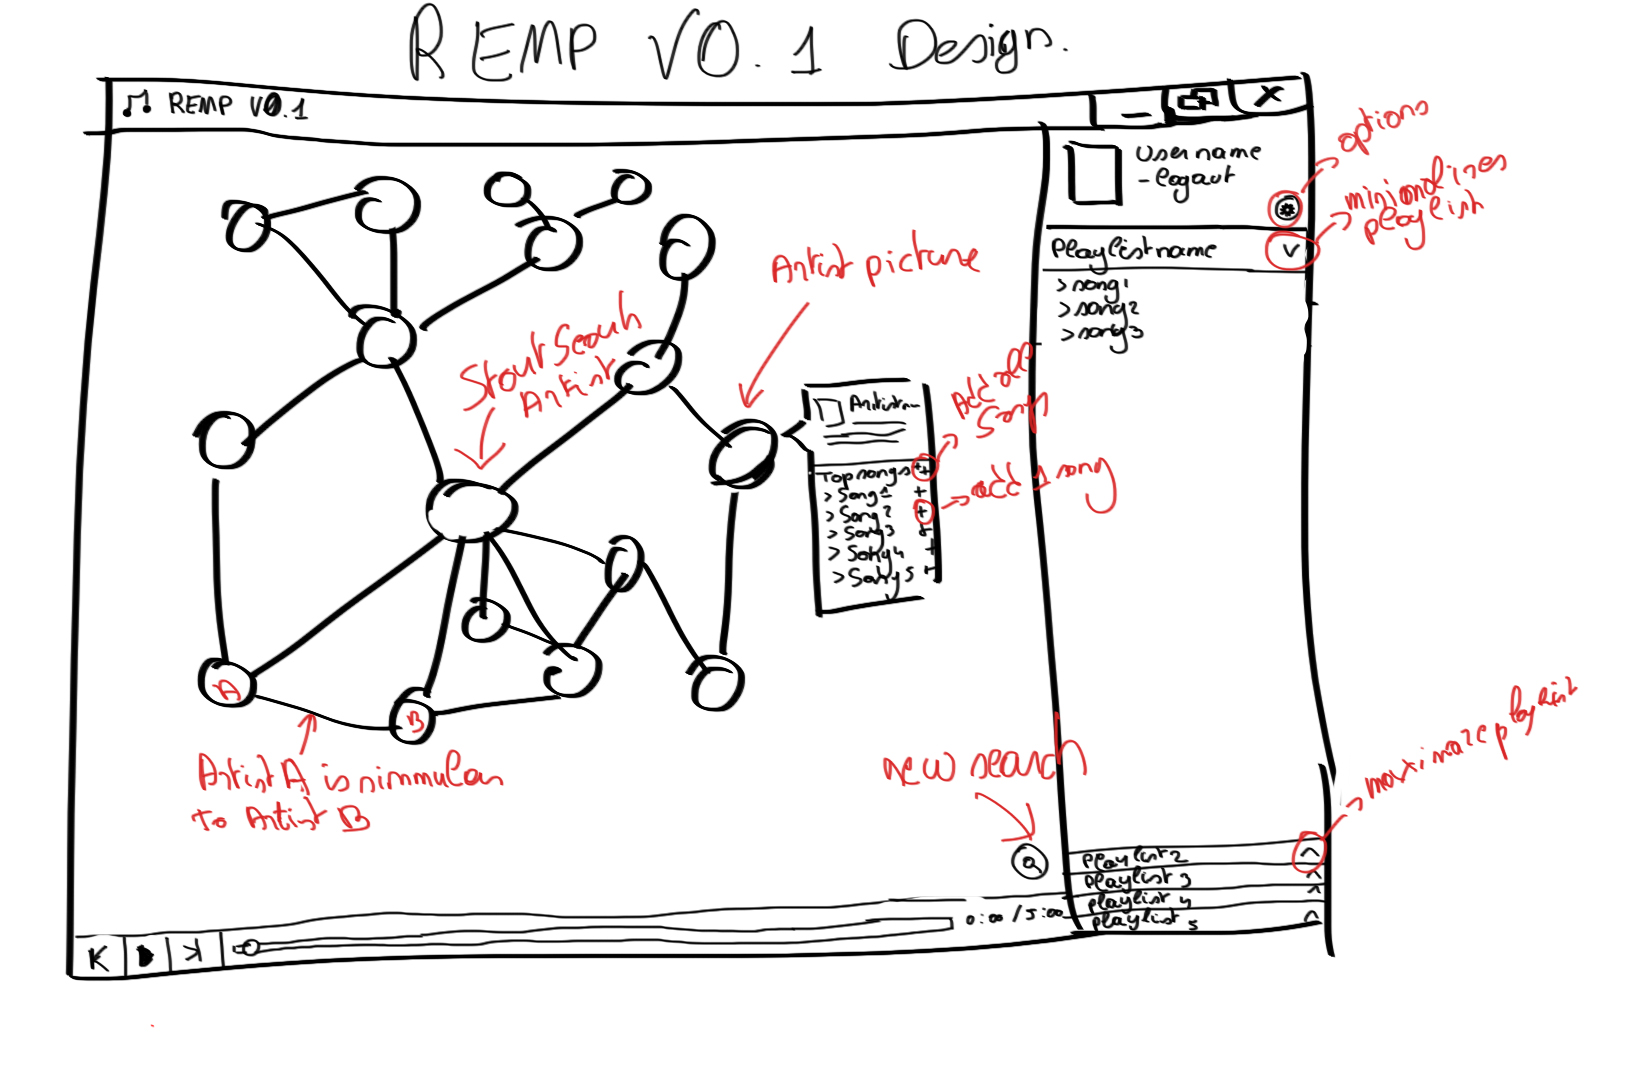 REMP V0.1 Design.
REMP V0.1
Username
- logout
options
minimalizes
playlist
Playlistname
>song1
>song2
>song3
Artist picture
Start Search
Artist
Add all
Songs
add 1 song
Topsongs ++
> Song1 +
> Song2 +
> Song3 +
> Song4 +
> Song5 +
A
B
Artist A is simmular
to Artist B
new search
maximaze playlist
playlist2 ^
playlist 3 ^
playlist 4 ^
playlist 5 ^
0:00 / 5:00